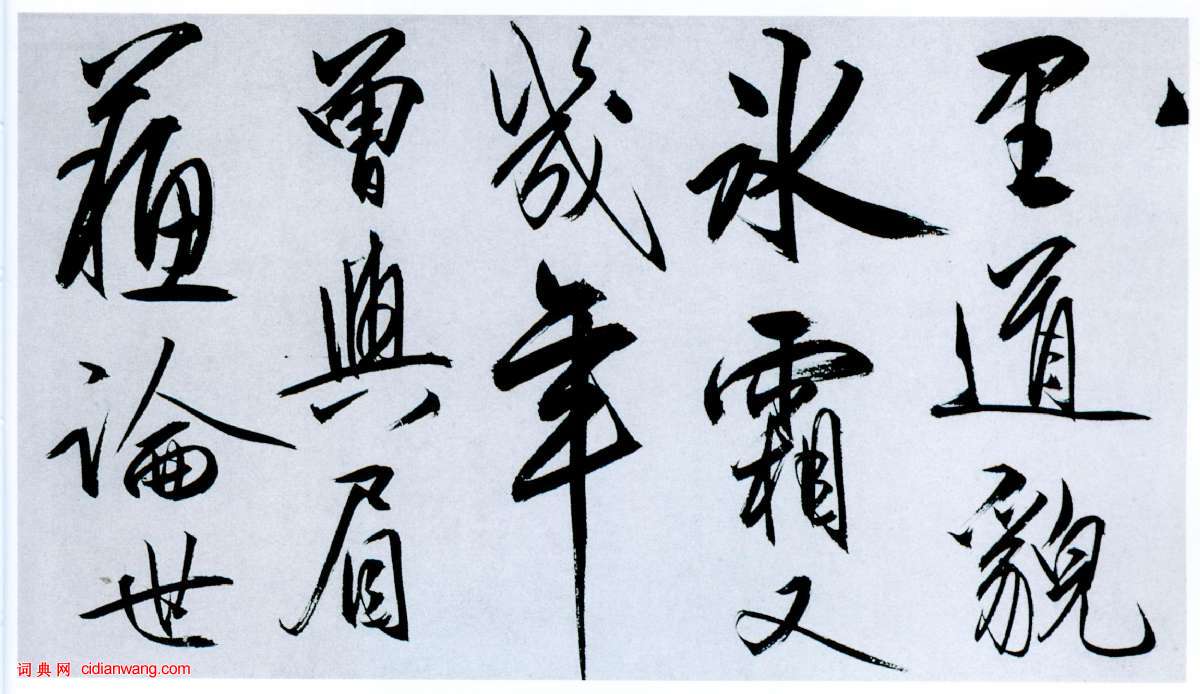 里道貌
冰霜又
幾年
曾與眉
蘓論世
词典网 cidianwang.com